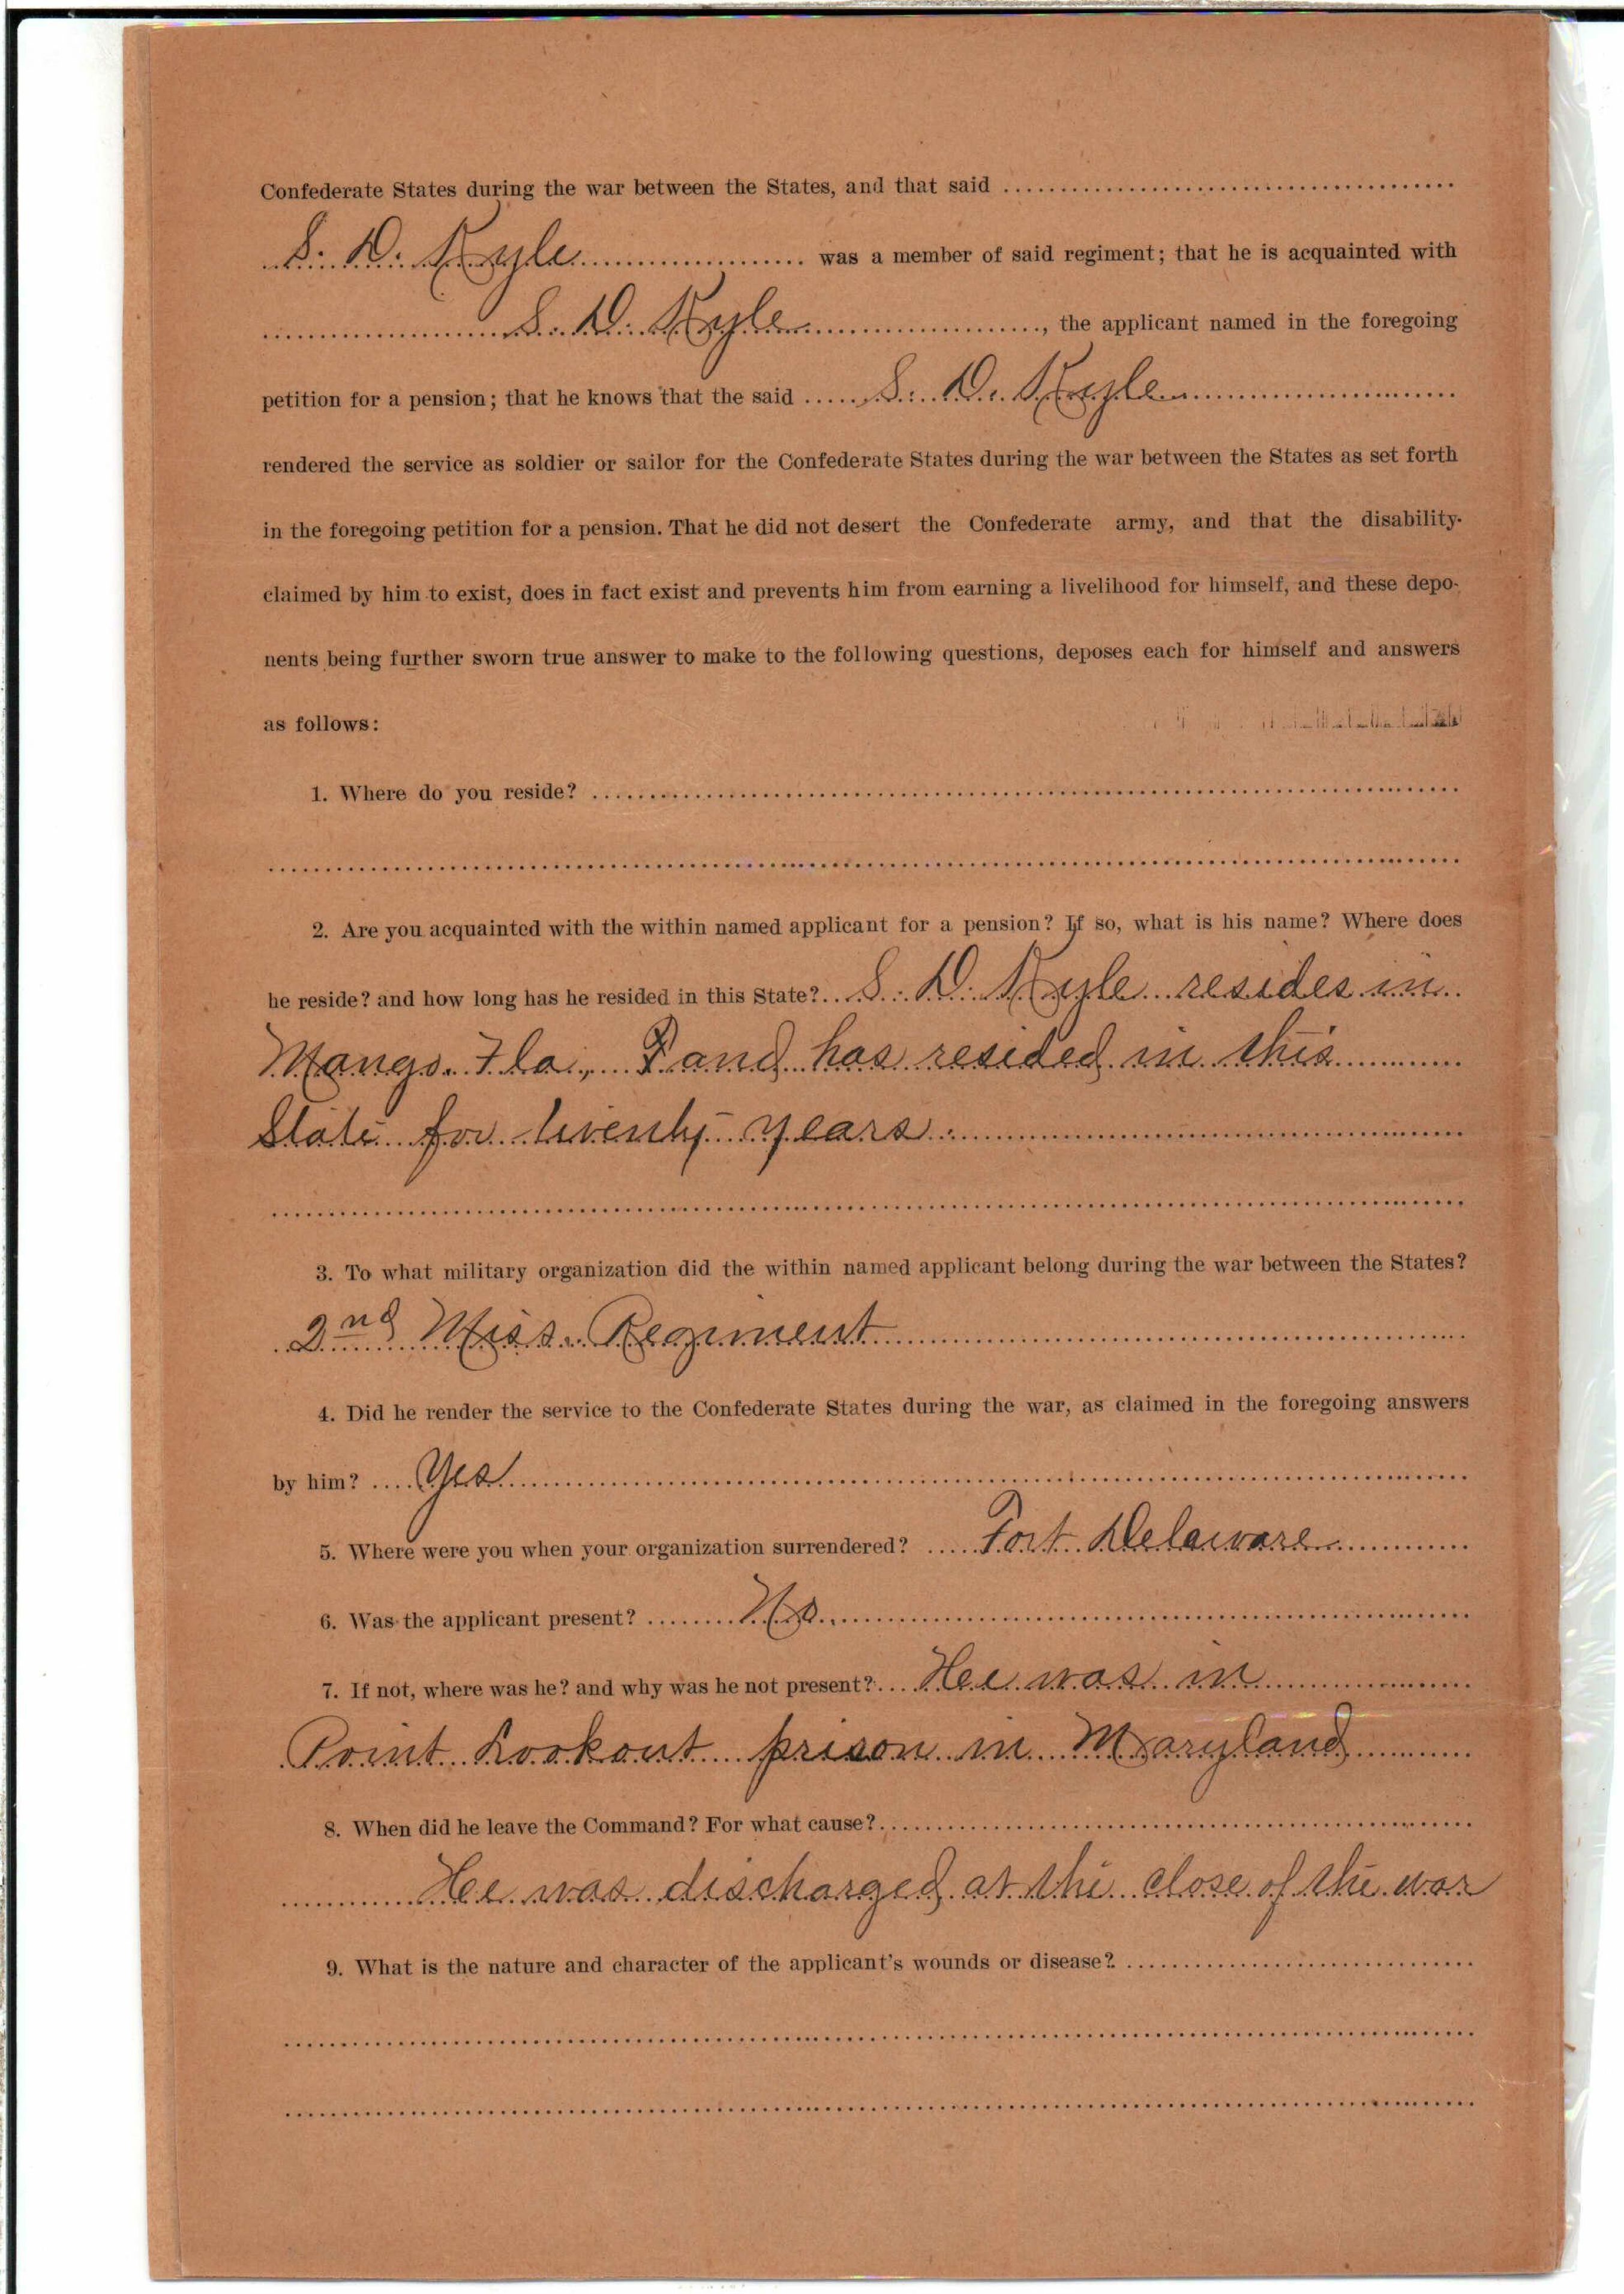 Confederate States during the war between the States, and that said
S. D. Kyle was a member of said regiment; that he is acquainted with
S. D. Kyle, the applicant named in the foregoing
petition for a pension; that he knows that the said S. D. Kyle
rendered the service as soldier or sailor for the Confederate States during the war between the States as set forth
in the foregoing petition for a pension. That he did not desert the Confederate army, and that the disability
claimed by him to exist, does in fact exist and prevents him from earning a livelihood for himself, and these depo-
nents being further sworn true answer to make to the following questions, deposes each for himself and answers
as follows:
1. Where do you reside?
2. Are you acquainted with the within named applicant for a pension? If so, what is his name? Where does
he reside? and how long has he resided in this State? S. D. Kyle resides in
Mango Fla., and has resided in this
State for twenty years
3. To what military organization did the within named applicant belong during the war between the States?
2nd Miss. Regiment
4. Did he render the service to the Confederate States during the war, as claimed in the foregoing answers
by him? Yes
5. Where were you when your organization surrendered? Fort Delaware
6. Was the applicant present? No
7. If not, where was he? and why was he not present? He was in
Point Lookout prison in Maryland
8. When did he leave the Command? For what cause?
He was discharged at the close of the war
9. What is the nature and character of the applicant's wounds or disease?